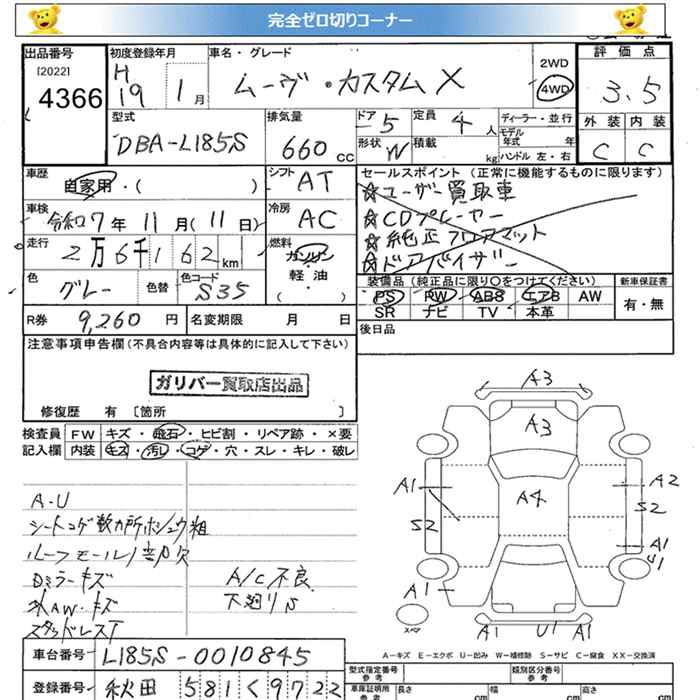 完全ゼロ切りコーナー
出品番号
[2022]
4366
初度登録年月
H19 1月
車名・グレード
ムーヴ・カスタム X
2WD
4WD
評価点
3.5
外装 内装
C C
型式
DBA-L185S
排気量
660 cc
ドア 5
形状 W
定員 4 人
積載 kg
ディーラー・並行
モデル年式 年
ハンドル 左・右
車歴
自家用・( )
シフト
AT
車検
令和7年11月(11日)
冷房
AC
走行
2万6千162km
燃料
ガソリン
軽油
( )
色
グレー
色替
色コード
S35
R券 9,260 円
名変期限 月 日
セールスポイント(正常に機能するものに限ります)
☆ユーザー買取車
☆CDプレーヤー
☆純正フロアマット
☆ドアバイザー
装備品(純正品に限り○をつけてください)
PS PW ABS エアB AW
SR ナビ TV 本革
新車保証書
有・無
後日品
注意事項申告欄(不具合内容等は具体的に記入して下さい)
ガリバー買取店出品
修復歴 有 〔箇所 〕
検査員記入欄
FW キズ・飛石・ヒビ割・リペア跡・×要
内装 キズ・汚レ・コゲ・穴・スレ・キレ・破レ
A-U
シートコゲ数カ所ホシュウ粗
ルーフモール1部欠
Dミラーキズ
AW・キズ
スタッドレスT
A/C不良
下廻りS
A3
A3
A4
A1
S2
A1
A2
S2
A1
U1
A1 U1 A1
スペア
A-キズ E-エクボ U-凹み W-補修跡 S-サビ C-腐食 XX-交換済
車台番号 L185S-0010845
登録番号 秋田 581 く 9722
型式指定番号
類別区分番号
車庫証明用参考
長さ cm
幅 cm
高さ cm